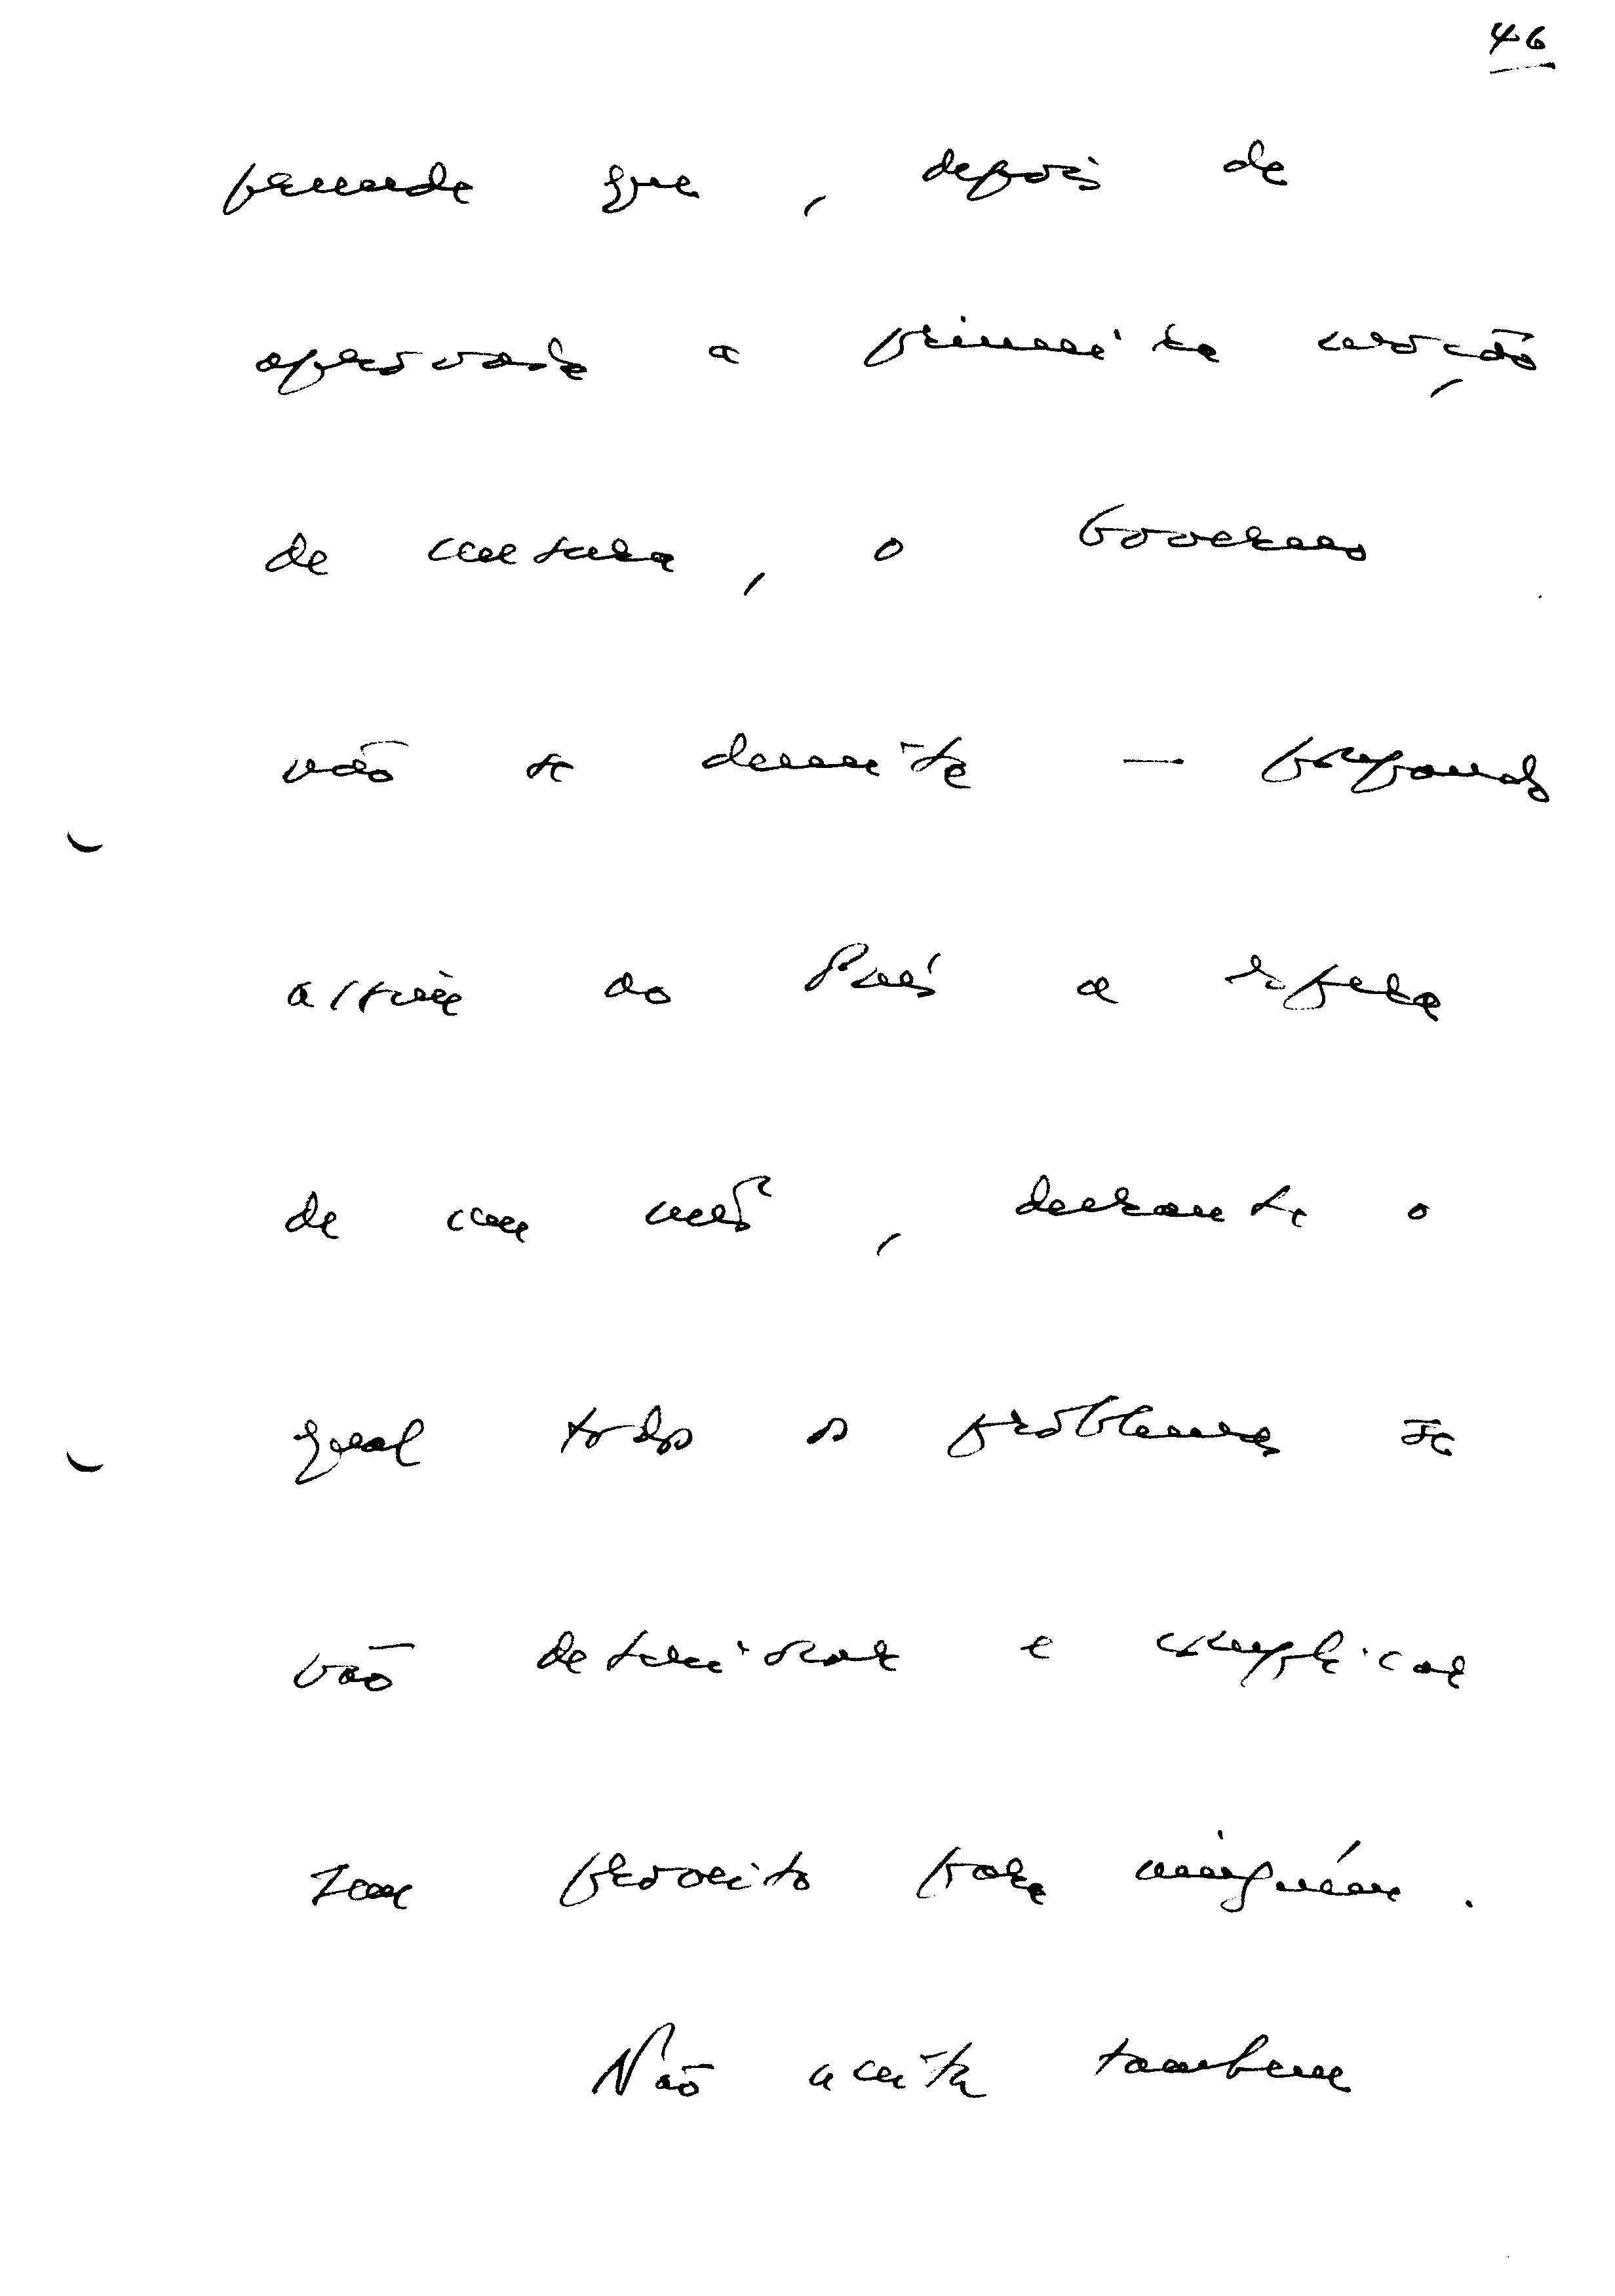 46
permite que, depois de
aprovada a primeira moção
de censura, o Governo
não se demite — propondo
assim ao País a espera
de um mês, durante o
qual todos os problemas se
vão deteriorar e complicar
sem proveito para ninguém.
Não aceita também